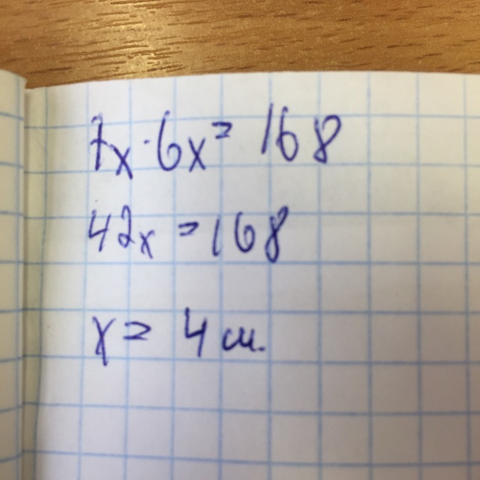 7x·6x=168
42x=168
x=4см.